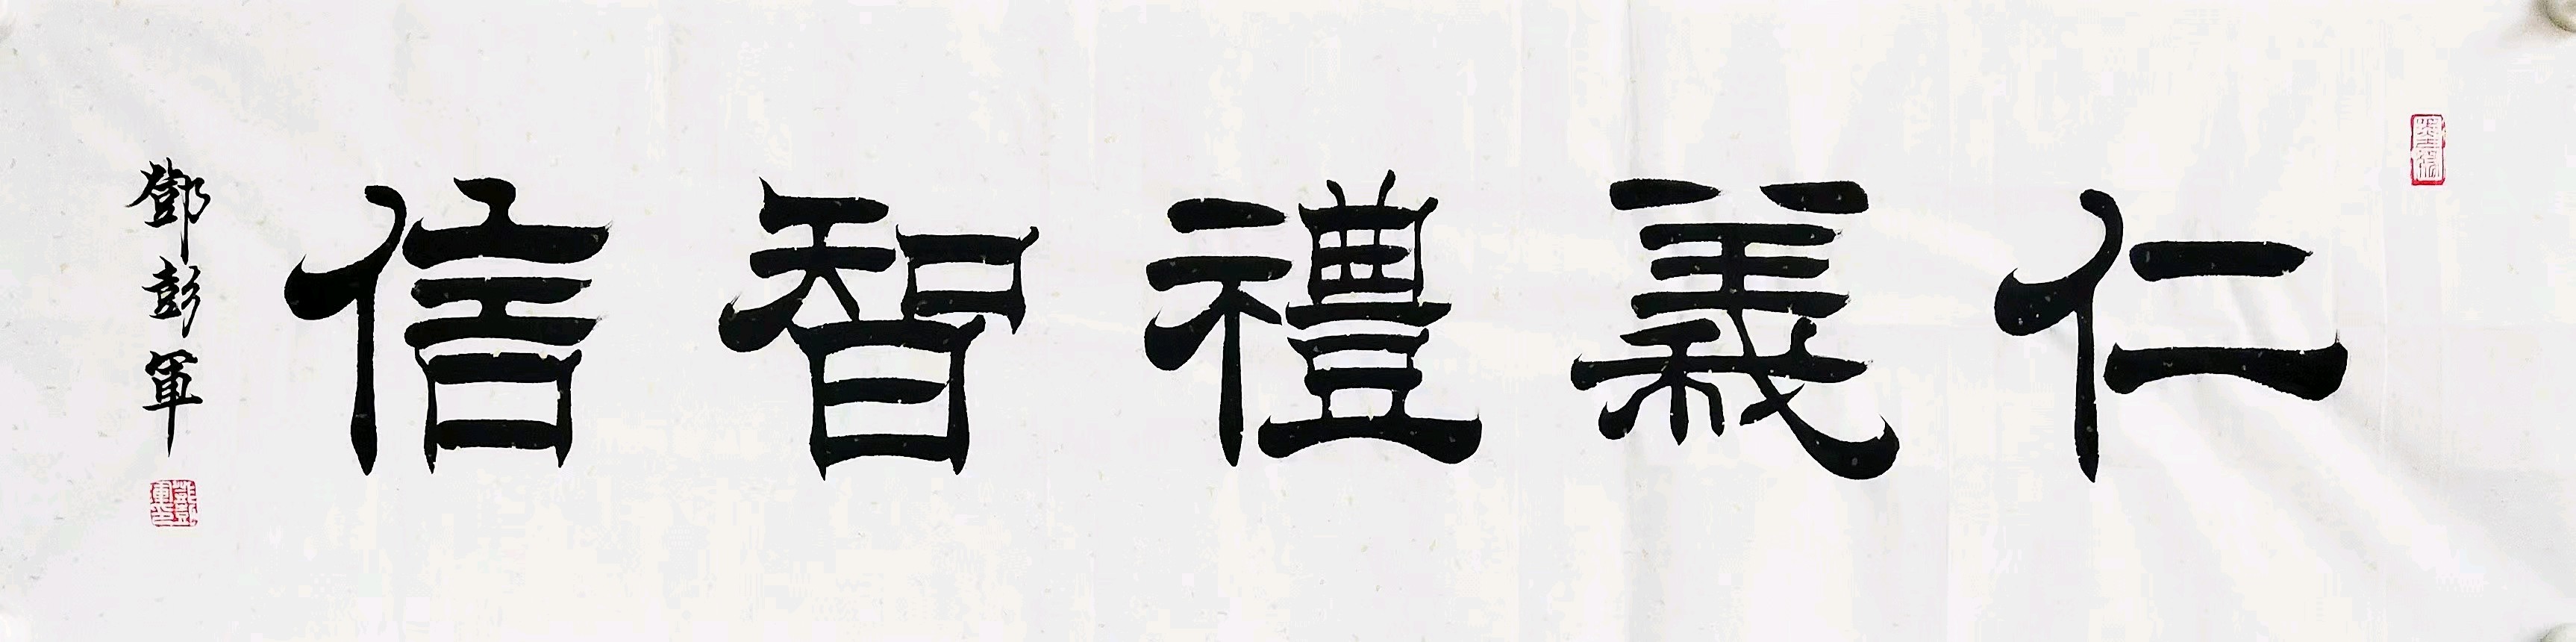 仁義禮智信
鄧彭軍